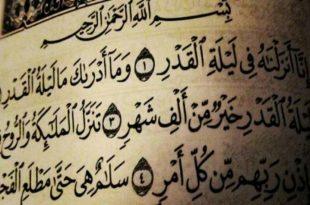 بِسْمِ ٱللَّهِ ٱلرَّحْمَٰنِ ٱلرَّحِيمِ
إِنَّا أَنزَلْنَٰهُ فِي لَيْلَةِ ٱلْقَدْرِ ١ وَمَآ أَدْرَىٰكَ مَا لَيْلَةُ ٱلْقَدْرِ
لَيْلَةُ ٱلْقَدْرِ خَيْرٌ مِّنْ أَلْفِ شَهْرٍ ٣ تَنَزَّلُ ٱلْمَلَٰٓئِكَةُ وَٱلرُّوحُ
بِإِذْنِ رَبِّهِم مِّن كُلِّ أَمْرٍ ٤ سَلَٰمٌ هِيَ حَتَّىٰ مَطْلَعِ ٱلْفَجْرِ